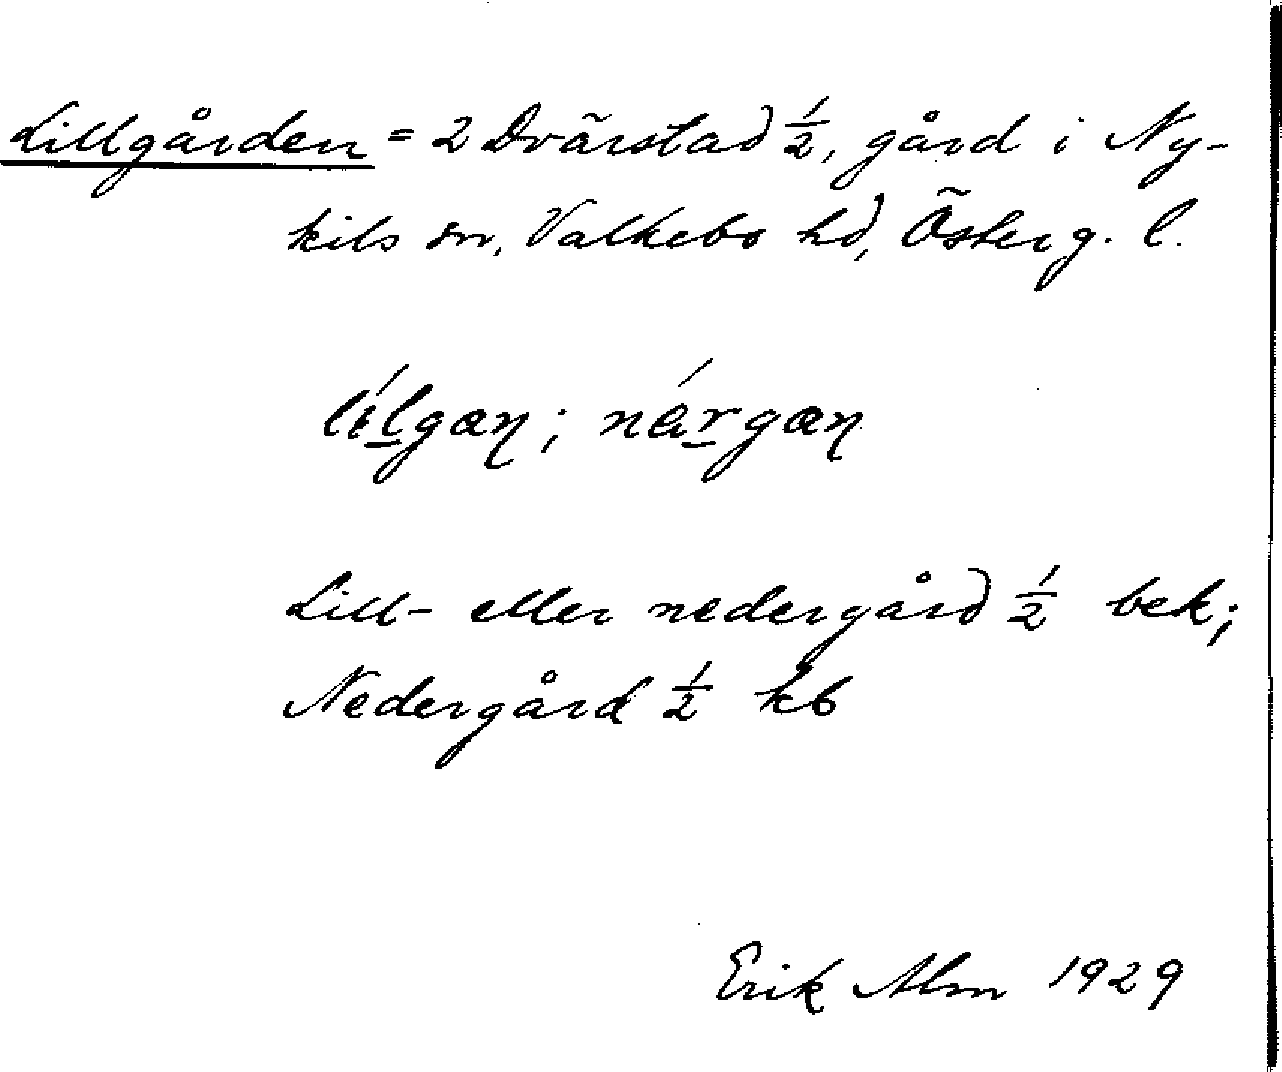 Lillgården = 2 Dvärstad 1/2, gård i Ny-
kils sn, Valkebo hd, Österg. l.
lílgaɳ; nárgaɳ
Lill- eller nedergård 1/2 bek;
Nedergård 1/2 kb
Erik Alm 1929